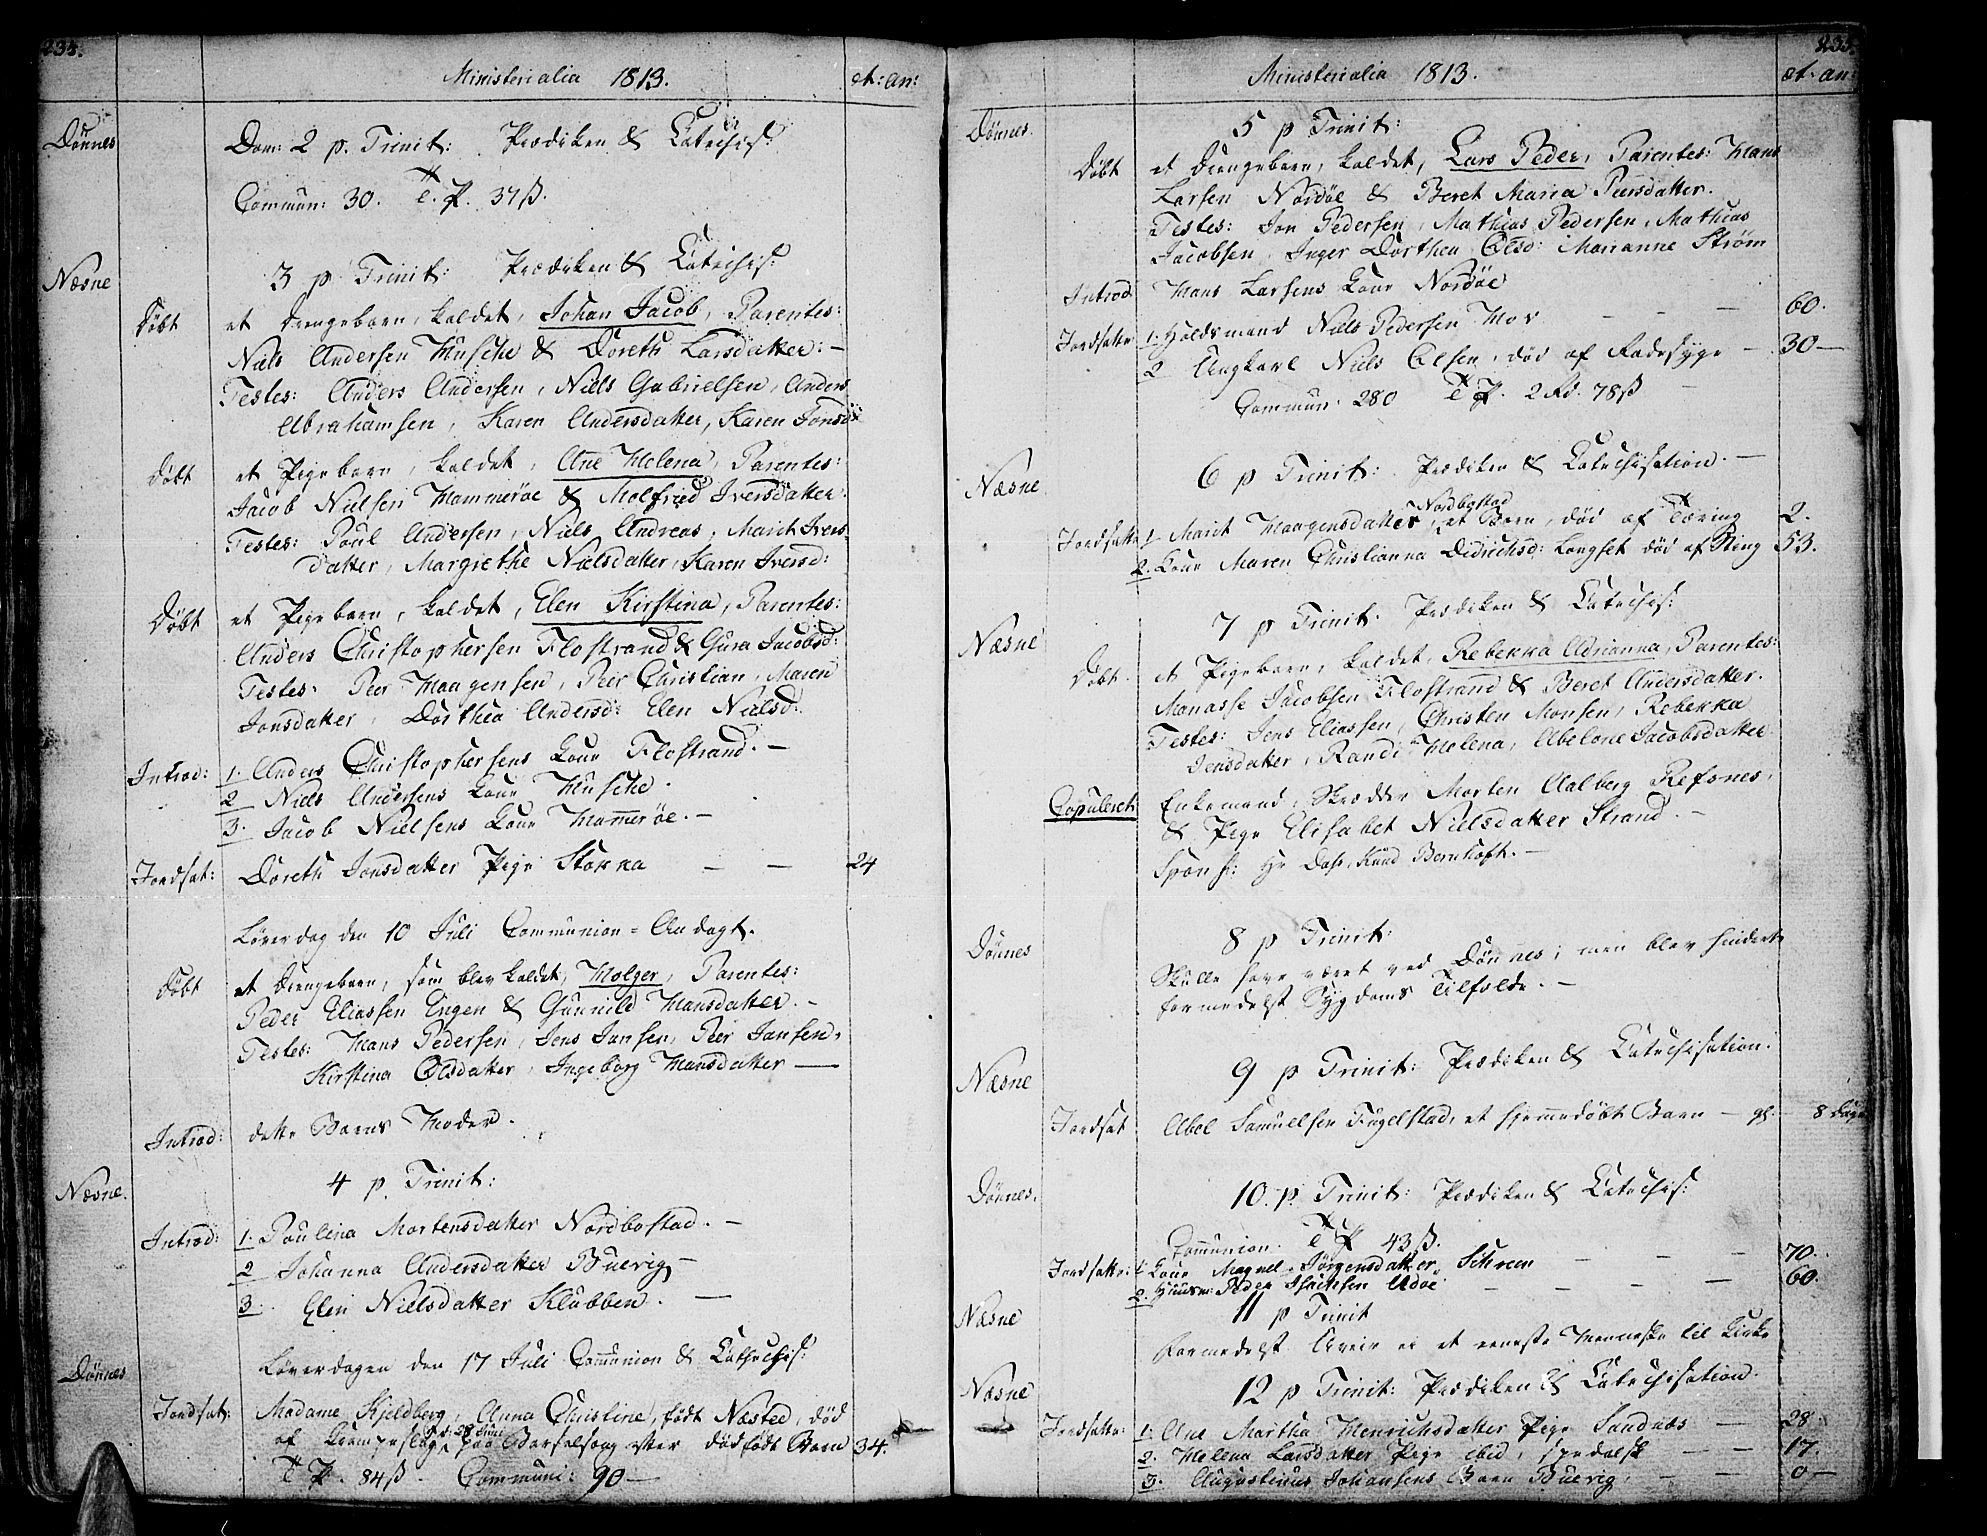 234.
Ministerialia 1813.
æt: an:
Dønnes
Dom: 2 p. Trinit: Prædiken & Catechis:
Commun: 30. T. P. 37 ß.
Næsne
3 p Trinit: Prædiken & Catechis:
Døbt
et Drengebarn, kaldet, Johan Jacob, Parentes:
Niels Andersen Husche & Doreth Larsdatter: —
Testes: Anders Andersen, Niels Gabrielsen, Anders
Abrahamsen, Karen Andersdatter, Karen Jonsd:
Døbt
et Pigebarn, kaldet, Ane Helena, Parentes:
Jacob Nielsen Hammerøe & Holfried Iversdatter:
Testes: Poul Andersen, Niels Andreas, Marit Ivers
datter, Margrethe Nielsdatter, Karen Iversd:
Døbt
et Pigebarn, kaldet, Elen Kirstina, Parentes:
Anders Christophersen Flostrand & Gura Jacobsd:
Testes: Peer Haagensen, Peir Christian, Maren
Jonsdatter, Dorthea Andersd: Elen Nielsd:
Introd: 1. Anders Christophersens Kone Flostrand. —
2 Niels Andersens Kone Husche.
3. Jacob Nielsens Kone Hammerøe. —
Jordsat: Doreth Jonsdatter Pige Stokka — — 24
Løverdag den 10 Juli Communion = Andagt.
Døbt
et Drengebarn, som blev kaldet, Holger, Parentes:
Peder Eliassen Engen & Gunnild Hansdatter. —
Testes: Hans Pedersen, Jens Jansen, Peer Jansen,
Kirstina Olsdatter, Ingeborg Hansdatter —
Introd: dette Barns Moder.
Næsne.
4 p. Trinit:
Introd: 1. Paulina Mortensdatter Nordbostad. —
2 Johanna Andersdatter Buevig —
3. Elen Nielsdatter Klubben. —
Dønnes
Løverdagen den 17 Juli Communion & Cathechis:
Jordsat: Madame Kjeldberg, Anna Christine, født Næsted, død
af Krampeslag, d: 28 Juni paa Barselseng efter dødfødt Barn 34.
T P. 84 ß. Communi: 90 —
235.
Ministerialia 1813.
æt: an:
Dønnes
5 p Trinit:
Døbt et Drengebarn, kaldet, Lars Peder, Parentes: Hans
Larsen Nordøe & Beret Maria Peersdatter.
Testes: Jon Pedersen, Mathias Pedersen, Mathias
Jacobsen, Inger Dorthea Olsd: Marianne Strøm
Introd Hans Larsens Kone Nordøe
Jordsatte 1. Holdsmand Niels Pedersen Hov — — — 60.
2 Ungkarl Niels Olsen, død af Radesyge — 30 —
Commun: 280 T. P. 2 Rd. 78 ß —
Næsne
6 p Trinit: Prædiken & Catechisation. —
Jordsatte 1 Marit Haagensdatter Nordbostad, et Barn, død af Tæring 2.
2. Kone Maren Christianna Didrichsd: Langset død af Sting 53.
Næsne
7 p Trinit. Prædiken & Catechis:
Døbt. et Pigebarn, kaldet, Rebekka Adrianna, Parentes:
Manasse Jacobsen Flostrand & Beret Andersdatter.
Testes: Jens Eliassen, Christen Monsen, Rebekka
Jensdatter, Randi Helena, Abelone Jacobsdatter
Copuleret Enkemand, Skrædder Morten Aalberg Refsnes,
& Pige Elisabet Nielsdatter Strand. —
Spons: Hr Dass, Knud Bernhoft. —
Dønnes
8 p Trinit:
Skulle have været ved Dønnes; men blev hindret
formedelst Sygdoms Tilfælde. —
Næsne
9 p Trinit: Prædiken & Catechisation.
Jordsat Abel Samuelsen Fugelstad, et hjemmedøbt Barn — gl: 8 Dage
Dønnes.
10. p. Trinit: Prædiken & Catechis:
Communion. T P 43 ß.
Jordsatte: 1 Kone Magnel Jørgensdatter Schren — — — 70.
2. Huusm: Peder Isachsen Udøe — — — 60.
Næsne
11 p Trinit
formedelst Uveir ei et eneste Menneske til Kirke
Næsne
12 p Trinit: Prædiken & Catechisation.
Jordsatte: 1. Ane Martha Henrichsdatter Pige Sandnæs — 28.
2. Helena Larsdatter Pige ibid, spedalsk — — 17.
3. Augustinus Johansens Barn Buevig, — — 0 —